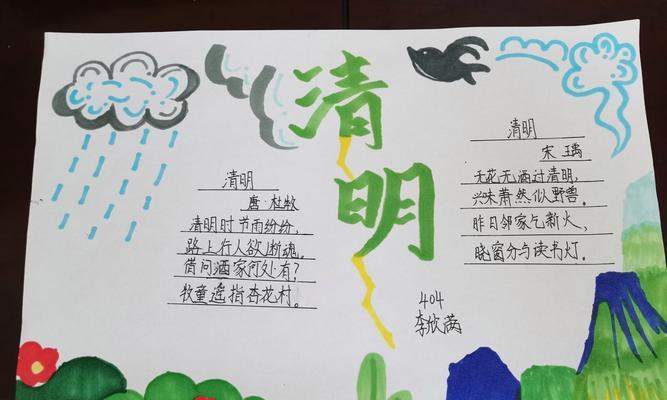 清明
清明
唐·杜牧
清明时节雨纷纷,
路上行人欲断魂。
借问酒家何处有?
牧童遥指杏花村。
清明
宋 王禹
无花无酒过清明,
兴味萧然似野兽。
昨日邻家乞新火,
晓窗分与读书灯。
404
李欣茜